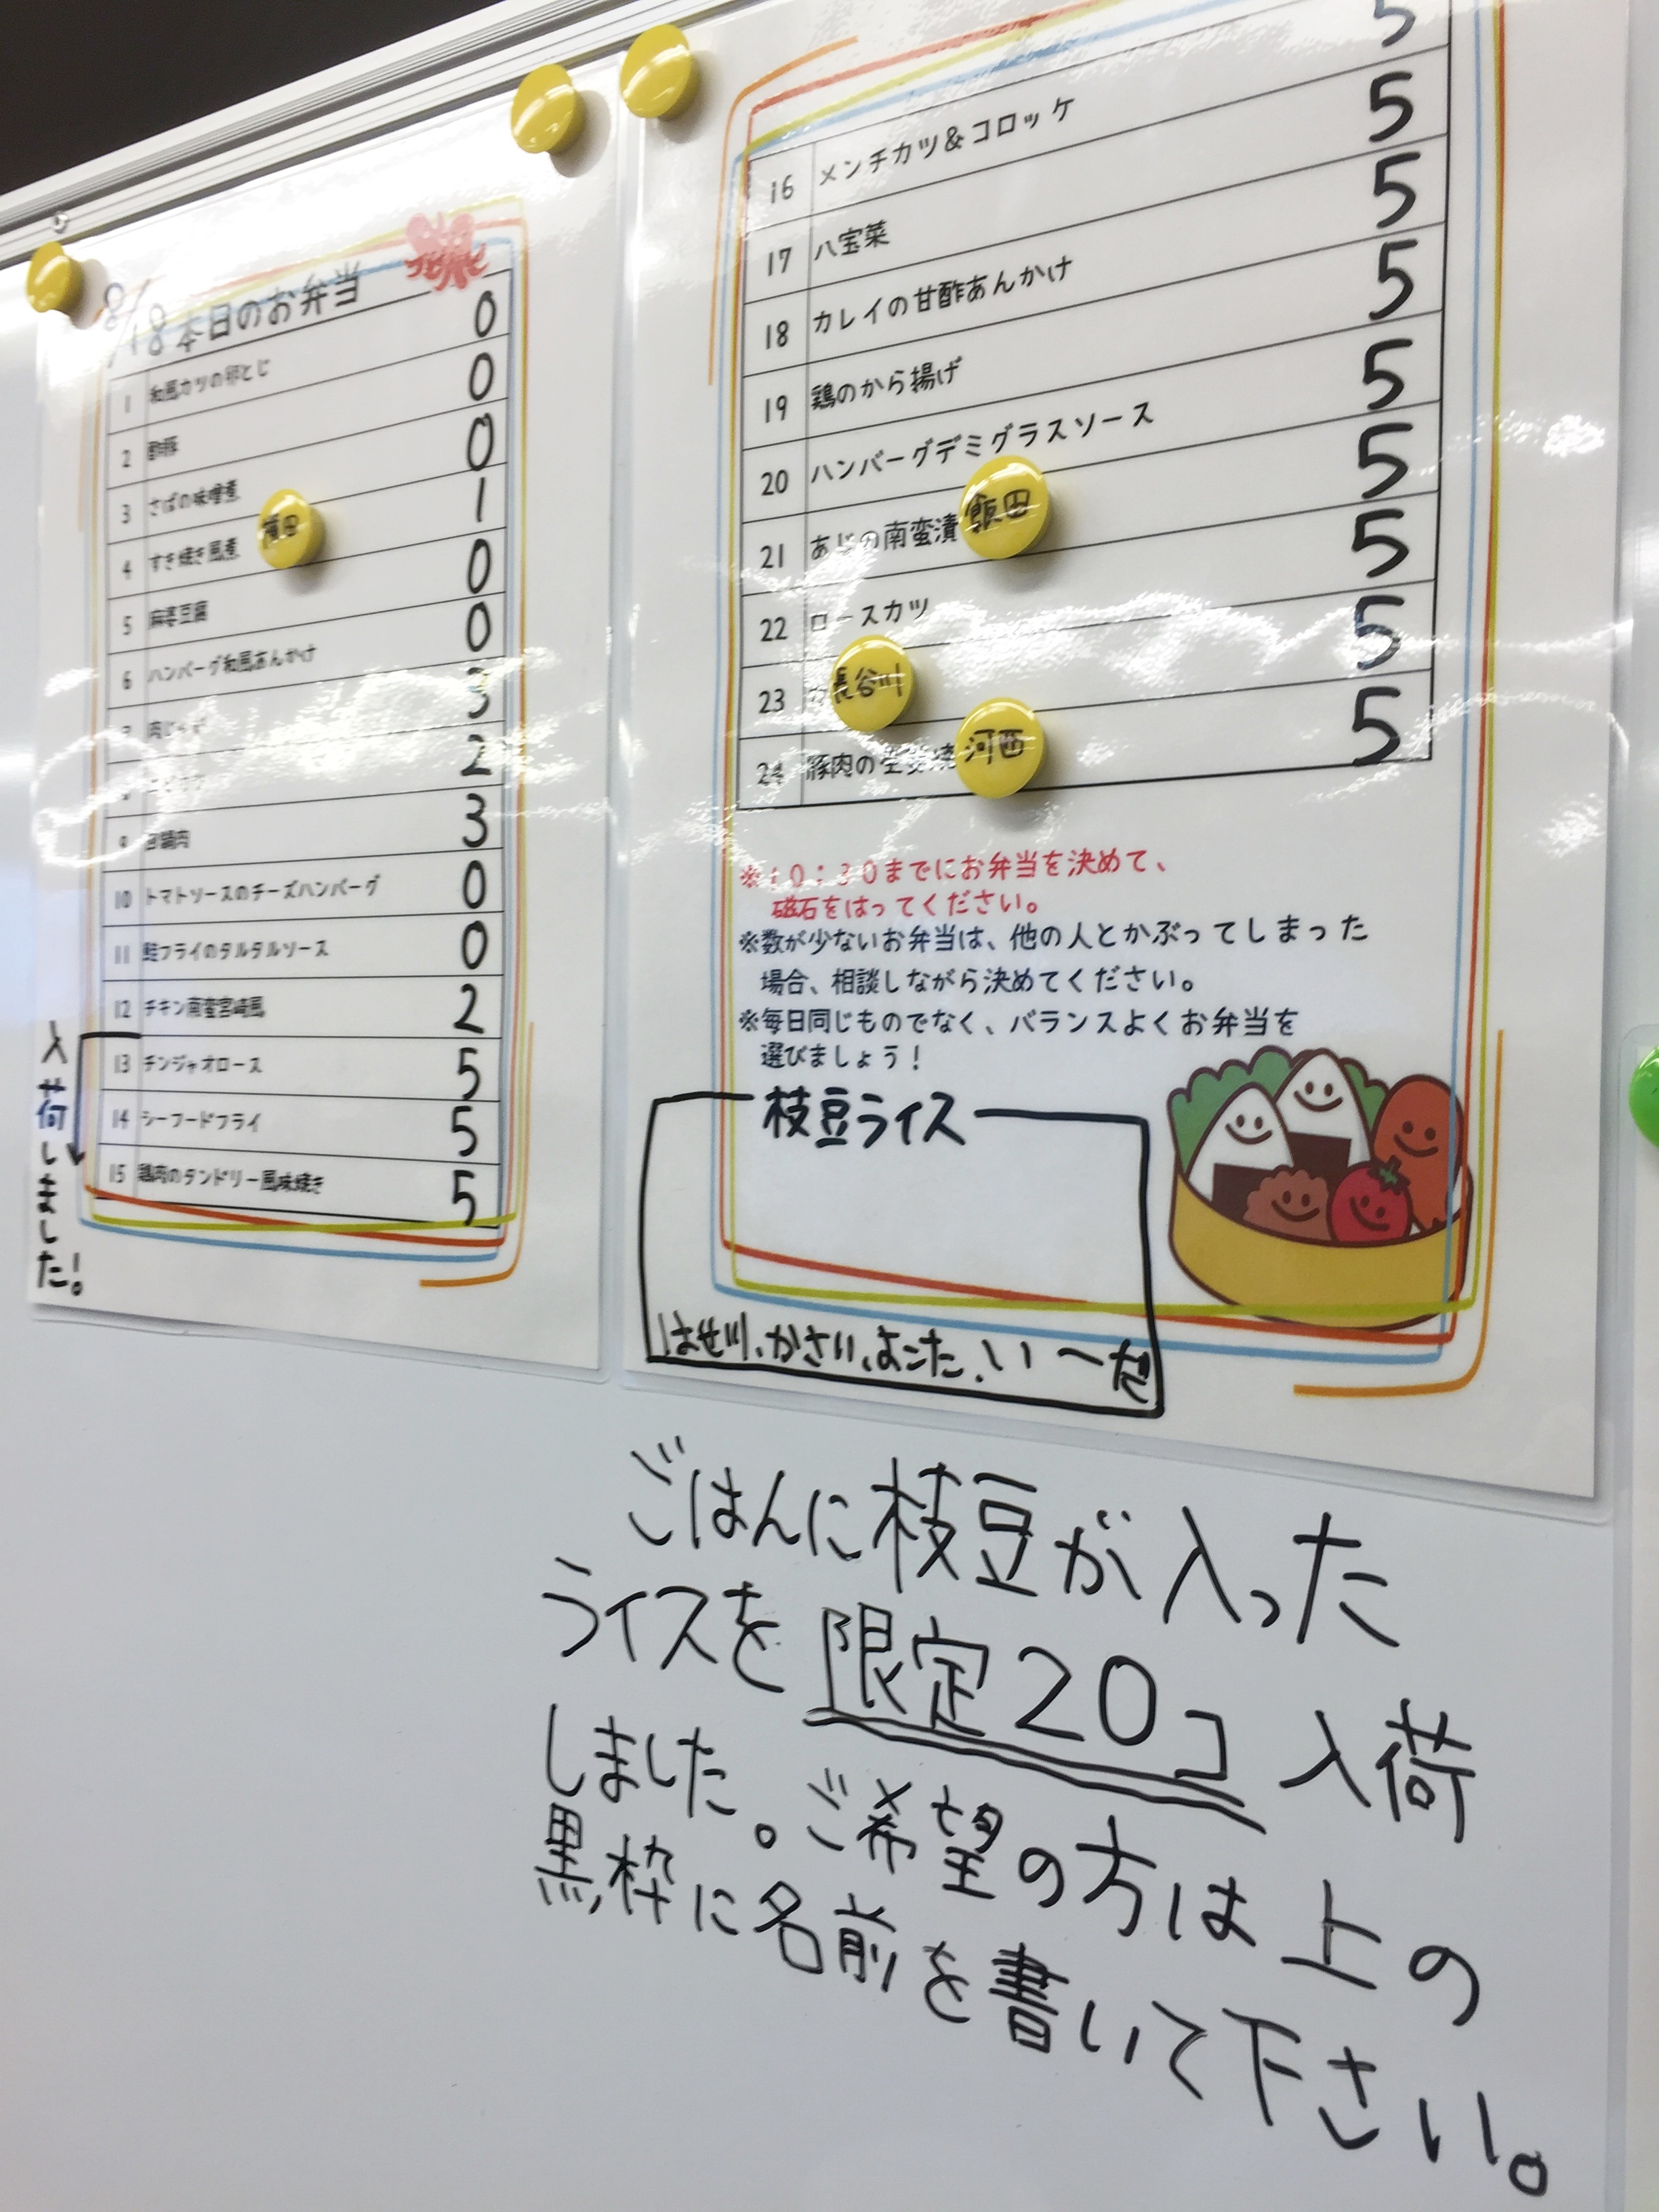 8/18 本日のお弁当
1 和風カツの卵とじ 0
2 酢豚 0
3 さばの味噌煮 0
4 すき焼き風煮 横田 1
5 麻婆豆腐 0
6 ハンバーグ和風あんかけ 0
7 肉じゃが 3
8 2
9 回鍋肉 3
10 トマトソースのチーズハンバーグ 0
11 鮭フライのタルタルソース 0
12 チキン南蛮宮崎風 2
13 チンジャオロース 5
14 シーフードフライ 5
15 鶏肉のタンドリー風味焼き 5
入荷しました!。
16 メンチカツ&コロッケ 5
17 八宝菜 5
18 カレイの甘酢あんかけ 5
19 鶏のから揚げ 5
20 ハンバーグデミグラスソース 5
21 あじの南蛮漬 飯田 5
22 ロースカツ 5
23 長谷川 5
24 豚肉の生姜焼 河西 5
※10:30までにお弁当を決めて、
磁石をはってください。
※数が少ないお弁当は、他の人とかぶってしまった
場合、相談しながら決めてください。
※毎日同じものでなく、バランスよくお弁当を
選びましょう!
枝豆ライス
はせ川、かさい、よこた、いーだ
ごはんに枝豆が入った
ライスを限定20コ入荷
しました。ご希望の方は上の
黒枠に名前を書いて下さい。